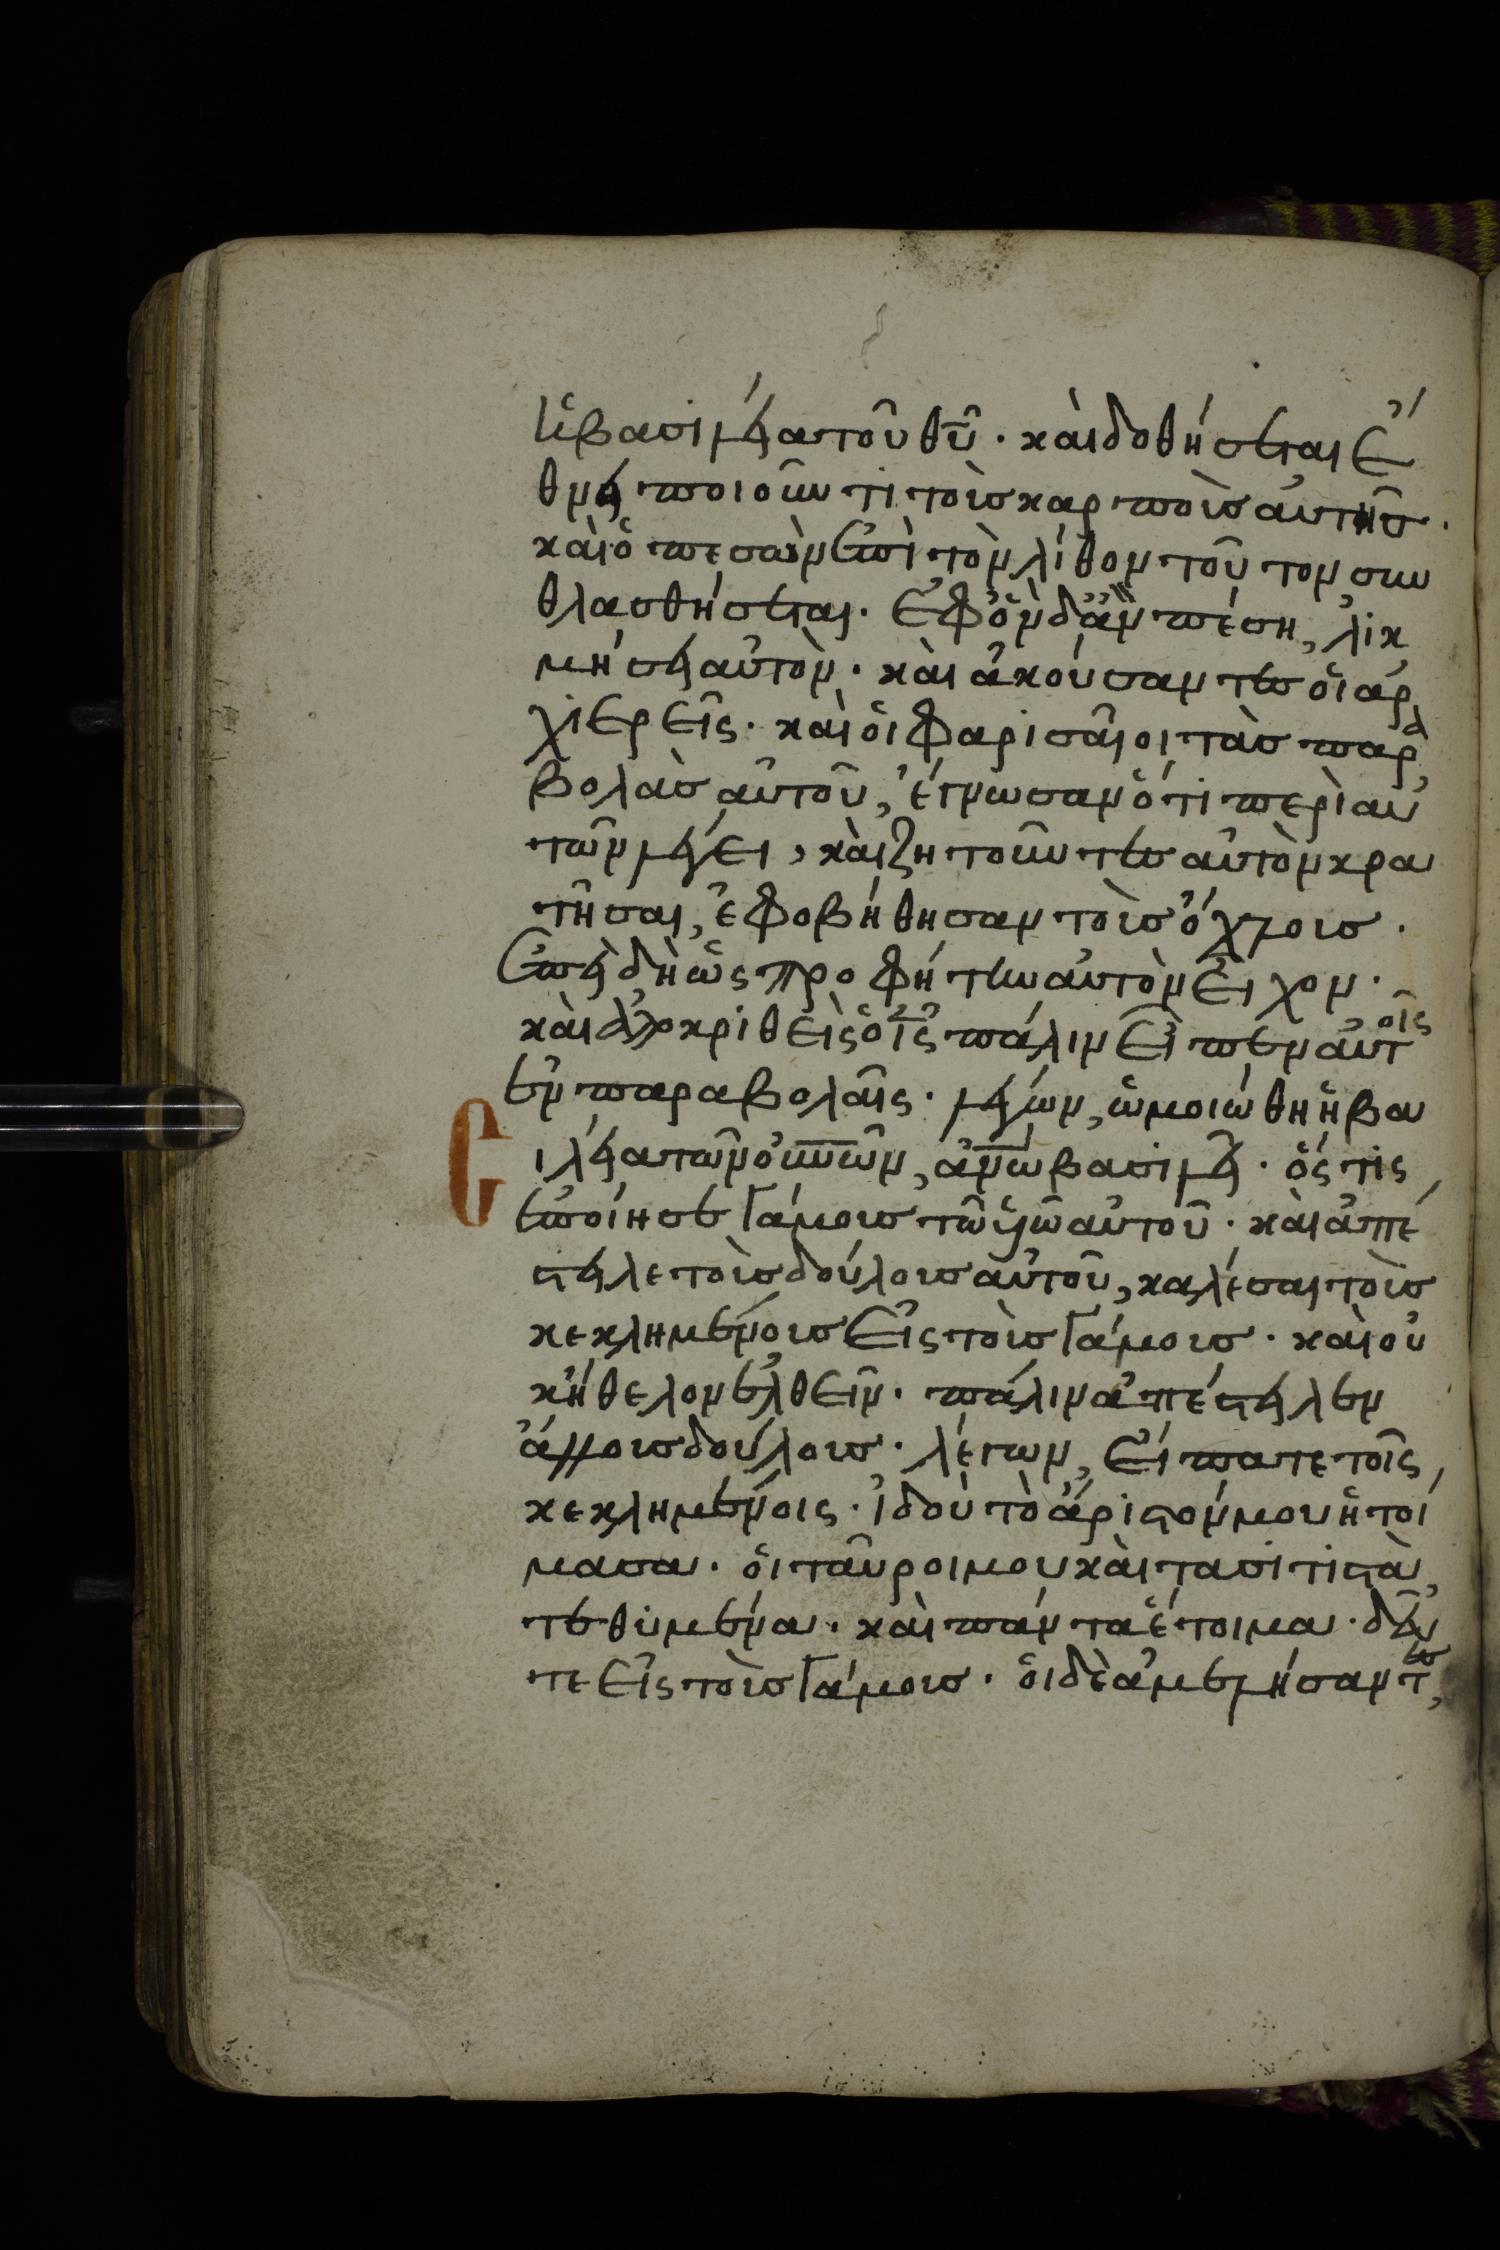 ἡ βασιλεία τοῦ θῡ · καὶ δοθήσεται ἔ
θνει ποιοῦντι τοὺς καρποὺς αὐτῆς ·
καὶ ὁ πεσὼν ἐπὶ τὸν λίθον τοῦτον συν
θλασθήσεται · ἐφ ὃν δ ἂν πέση, λικ
μήσει αὐτὸν · καὶ ἀκούσαντες οἱ ἀρ
χιερεῖς · καὶ οἱ φαρισαῖοι τὰς παρα
βολὰς αὐτοῦ, ἔγνωσαν ὅτι περὶ αυ
τῶν λέγει, καὶ ζητοῦντες αὐτὸν κρα
τῆσαι, ἐφοβήθησαν τοὺς ὄχλους ·
ἐπειδὴ ὡς προφήτην αὐτὸν εἶχον ·
καὶ ἀποκριθεὶς ὁ ις πάλιν εἶπεν αὐτοῖς
ἐν παραβολαῖς · λέγων, ὡμοιώθη ἡ βα
σιλεία τῶν οὐνῶν, ἀνω βασιλεῖ · ὅς τις
ἐποίησε γάμους τῶ υἱῶ αὐτοῦ · καὶ ἀπέ
στειλε τοὺς δούλους αὐτοῦ, καλέσαι τοὺς
κεκλημένους εἰς τοὺς γάμους · καὶ οὐ
κ ἤθελον ἐλθεῖν · πάλιν ἀπέστειλεν
ἄλλους δούλους · λέγων, εἴπατε τοῖς
κεκλημένοις · ἰδοὺ τὸ ἄριστόν μου ἡτοί
μασα · οἱ ταῦροί μου καὶ τα σιτιστὰ
τεθυμένα · καὶ πάντα ἕτοιμα · δεῦ
τε εἰς τοὺς γάμους · οἱ δὲ ἀμελήσαντες,